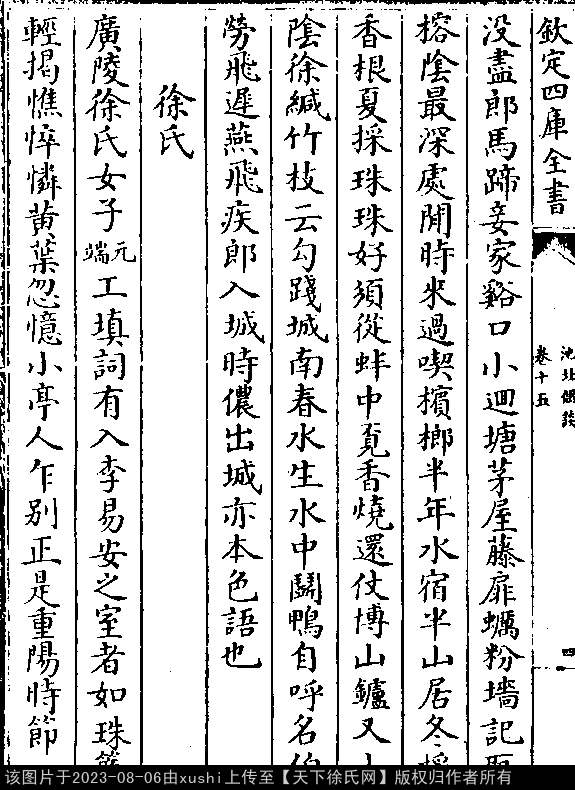 欽定四庫全書
池北偶談
卷十五
四
没盡郎馬蹄妾家谿口小迴塘茅屋藤扉蠣粉墻記
榕陰最深處閒時來過喫檳榔半年水宿半山居冬採
香根夏採珠珠好須從蚌中覔香燒還仗博山鑪又
陰徐緘竹枝云勾踐城南春水生水中鬪鴨自呼名
勞飛遲燕飛疾郎入城時儂出城亦本色語也
徐氏
廣陵徐氏女子元端工填詞有入李易安之室者如珠
輕揭憔悴憐黄葉忽憶小亭人乍别正是重陽時節
该图片于2023-08-06由xushi上传至【天下徐氏网】版权归作者所有